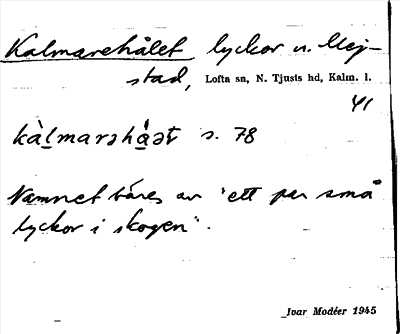 Kalmarehålet lyckor u. Mej-
stad, Lofta sn, N. Tjusts hd, Kalm. l.
41
s. 78
Namnet bäres av "ett par små
lyckor i skogen".
Ivar Modéer 1945